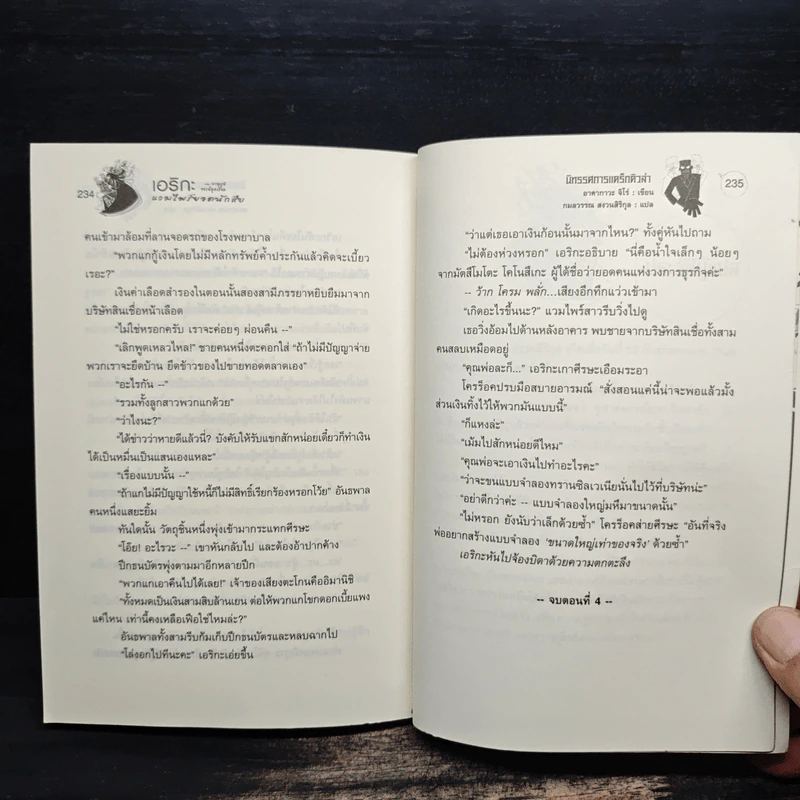 234
เอริกะ
แวมไพร์ยอดนักสืบ
คนเข้ามาล้อมที่ลานจอดรถของโรงพยาบาล
“พวกแกกู้เงินโดยไม่มีหลักทรัพย์ค้ำประกันแล้วคิดจะเบี้ยว
เรอะ?”
เงินค่าเลือดสำรองในตอนนั้นสองสามีภรรยาหยิบยืมมาจาก
บริษัทสินเชื่อหน้าเลือด
“ไม่ใช่หรอกครับ เราจะค่อยๆ ผ่อนคืน --”
“เลิกพูดเหลวไหล!” ชายคนหนึ่งตะคอกใส่ “ถ้าไม่มีปัญญาจ่าย
พวกเราจะยึดบ้าน ยึดข้าวของไปขายทอดตลาดเอง”
“อะไรกัน --”
“รวมทั้งลูกสาวพวกแกด้วย”
“ว่าไงนะ?”
“ได้ข่าวว่าหายดีแล้วนี่? บังคับให้รับแขกสักหน่อยเดี๋ยวก็ทำเงิน
ได้เป็นหมื่นเป็นแสนเองแหละ”
“เรื่องแบบนั้น --”
“ถ้าแกไม่มีปัญญาใช้หนี้ก็ไม่มีสิทธิ์เรียกร้องหรอกโว้ย” อันธพาล
คนหนึ่งแสยะยิ้ม
ทันใดนั้น วัตถุชิ้นหนึ่งพุ่งเข้ามากระแทกศีรษะ
“โอ๊ย! อะไรวะ --” เขาหันกลับไป และต้องอ้าปากค้าง
ปึกธนบัตรพุ่งตามมาอีกหลายปึก
“พวกแกเอาคืนไปได้เลย!” เจ้าของเสียงตะโกนคืออิมานิชิ
“ทั้งหมดเป็นเงินสามสิบล้านเยน ต่อให้พวกแกโขกดอกเบี้ยแพง
แค่ไหน เท่านี้คงเหลือเฟือใช่ไหมล่ะ?”
อันธพาลทั้งสามรีบก้มเก็บปึกธนบัตรและหลบฉากไป
“โล่งอกไปทีนะคะ” เอริกะเอ่ยขึ้น
นิทรรศการแดร็กคิวล่า
อาคากาวะ จิโร่ : เขียน
กมลวรรณ สงวนสิริกุล : แปล
235
“ว่าแต่เธอเอาเงินก้อนนั้นมาจากไหน?” ทั้งคู่หันไปถาม
“ไม่ต้องห่วงหรอก” เอริกะอธิบาย “นี่คือน้ำใจเล็กๆ น้อยๆ
จากมัตสึโมโตะ โคโนสึเกะ ผู้ได้ชื่อว่ายอดคนแห่งวงการธุรกิจค่ะ”
-- ว้าก โครม พลั่ก...เสียงอึกทึกแว่วเข้ามา
“เกิดอะไรขึ้นนะ?” แวมไพร์สาวรีบวิ่งไปดู
เธอวิ่งอ้อมไปด้านหลังอาคาร พบชายจากบริษัทสินเชื่อทั้งสาม
คนสลบเหมือดอยู่
“คุณพ่อละก็...” เอริกะเกาศีรษะเอือมระอา
โครร็อคปรบมือสบายอารมณ์ “สั่งสอนแค่นี้น่าจะพอแล้วมั้ง
ส่วนเงินทิ้งไว้ให้พวกมันแบบนี้”
“ก็แหงล่ะ”
“เม้มไปสักหน่อยดีไหม”
“คุณพ่อจะเอาเงินไปทำอะไรคะ”
“ว่าจะขนแบบจำลองทรานซิลเวเนียนั่นไปไว้ที่บริษัทน่ะ”
“อย่าดีกว่าค่ะ -- แบบจำลองใหญ่มหึมาขนาดนั้น”
“ไม่หรอก ยังนับว่าเล็กด้วยซ้ำ” โครร็อคส่ายศีรษะ “อันที่จริง
พ่ออยากสร้างแบบจำลอง ‘ขนาดใหญ่เท่าของจริง’ ด้วยซ้ำ”
เอริกะหันไปจ้องบิดาด้วยความตกตะลึง
-- จบตอนที่ 4 --